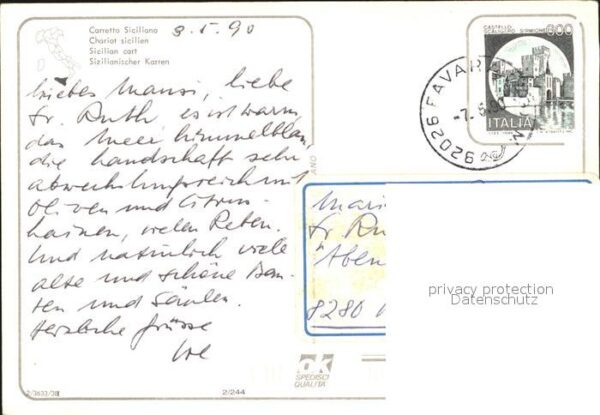 Carretto Siciliano
Chariot sicilien
Sicilian cart
Sizilianischer Karren
3.5.90
liebes Mausi, liebe
Fr. Ruth, es ist warm,
das Meer himmelblau,
die Landschaft sehr
abwechslungsreich mit
Oliven und Citrus-
hainen, vielen Reben.
Und natürlich viele
alte und schöne Bau-
ten und Säulen.
Herzliche Grüsse
CASTELLO
SCALIGERO SIRMIONE 600
ITALIA
92026 FAVARA
Fr Ru
8280
privacy protection
Datenschutz
OK
SPEDISCI
QUALITÀ
2/244